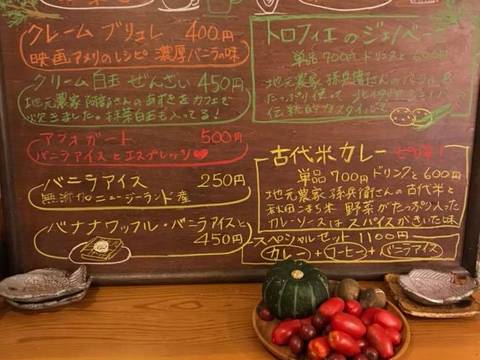 クレーム ブリュレ 400円
映画アメリのレシピ 濃厚バニラの味
クリーム白玉ぜんざい 450円
地元農家 阿部さんのあずきをカフェで
炊きました。抹茶白玉も入ってる!
アフォガート 500円
バニラアイスとエスプレッソ♥
バニラアイス 250円
無添加ニュージーランド産
バナナワッフル・バニラアイスと
450円
トロフィエのジェノベーゼ
単品700円 ドリンクと600円
地元農家 孫兵衛さんのバジルを
たっぷり使って 北イタリアの
伝統的なスタイルで
古代米カレー
単品700円 ドリンクと600円
地元農家 孫兵衛さんの古代米と
秋田こまち米 野菜がたっぷり入った
カレーソースは スパイスがきいた味
スペシャルセット 1100円
カレー + コーヒー + バニラアイス